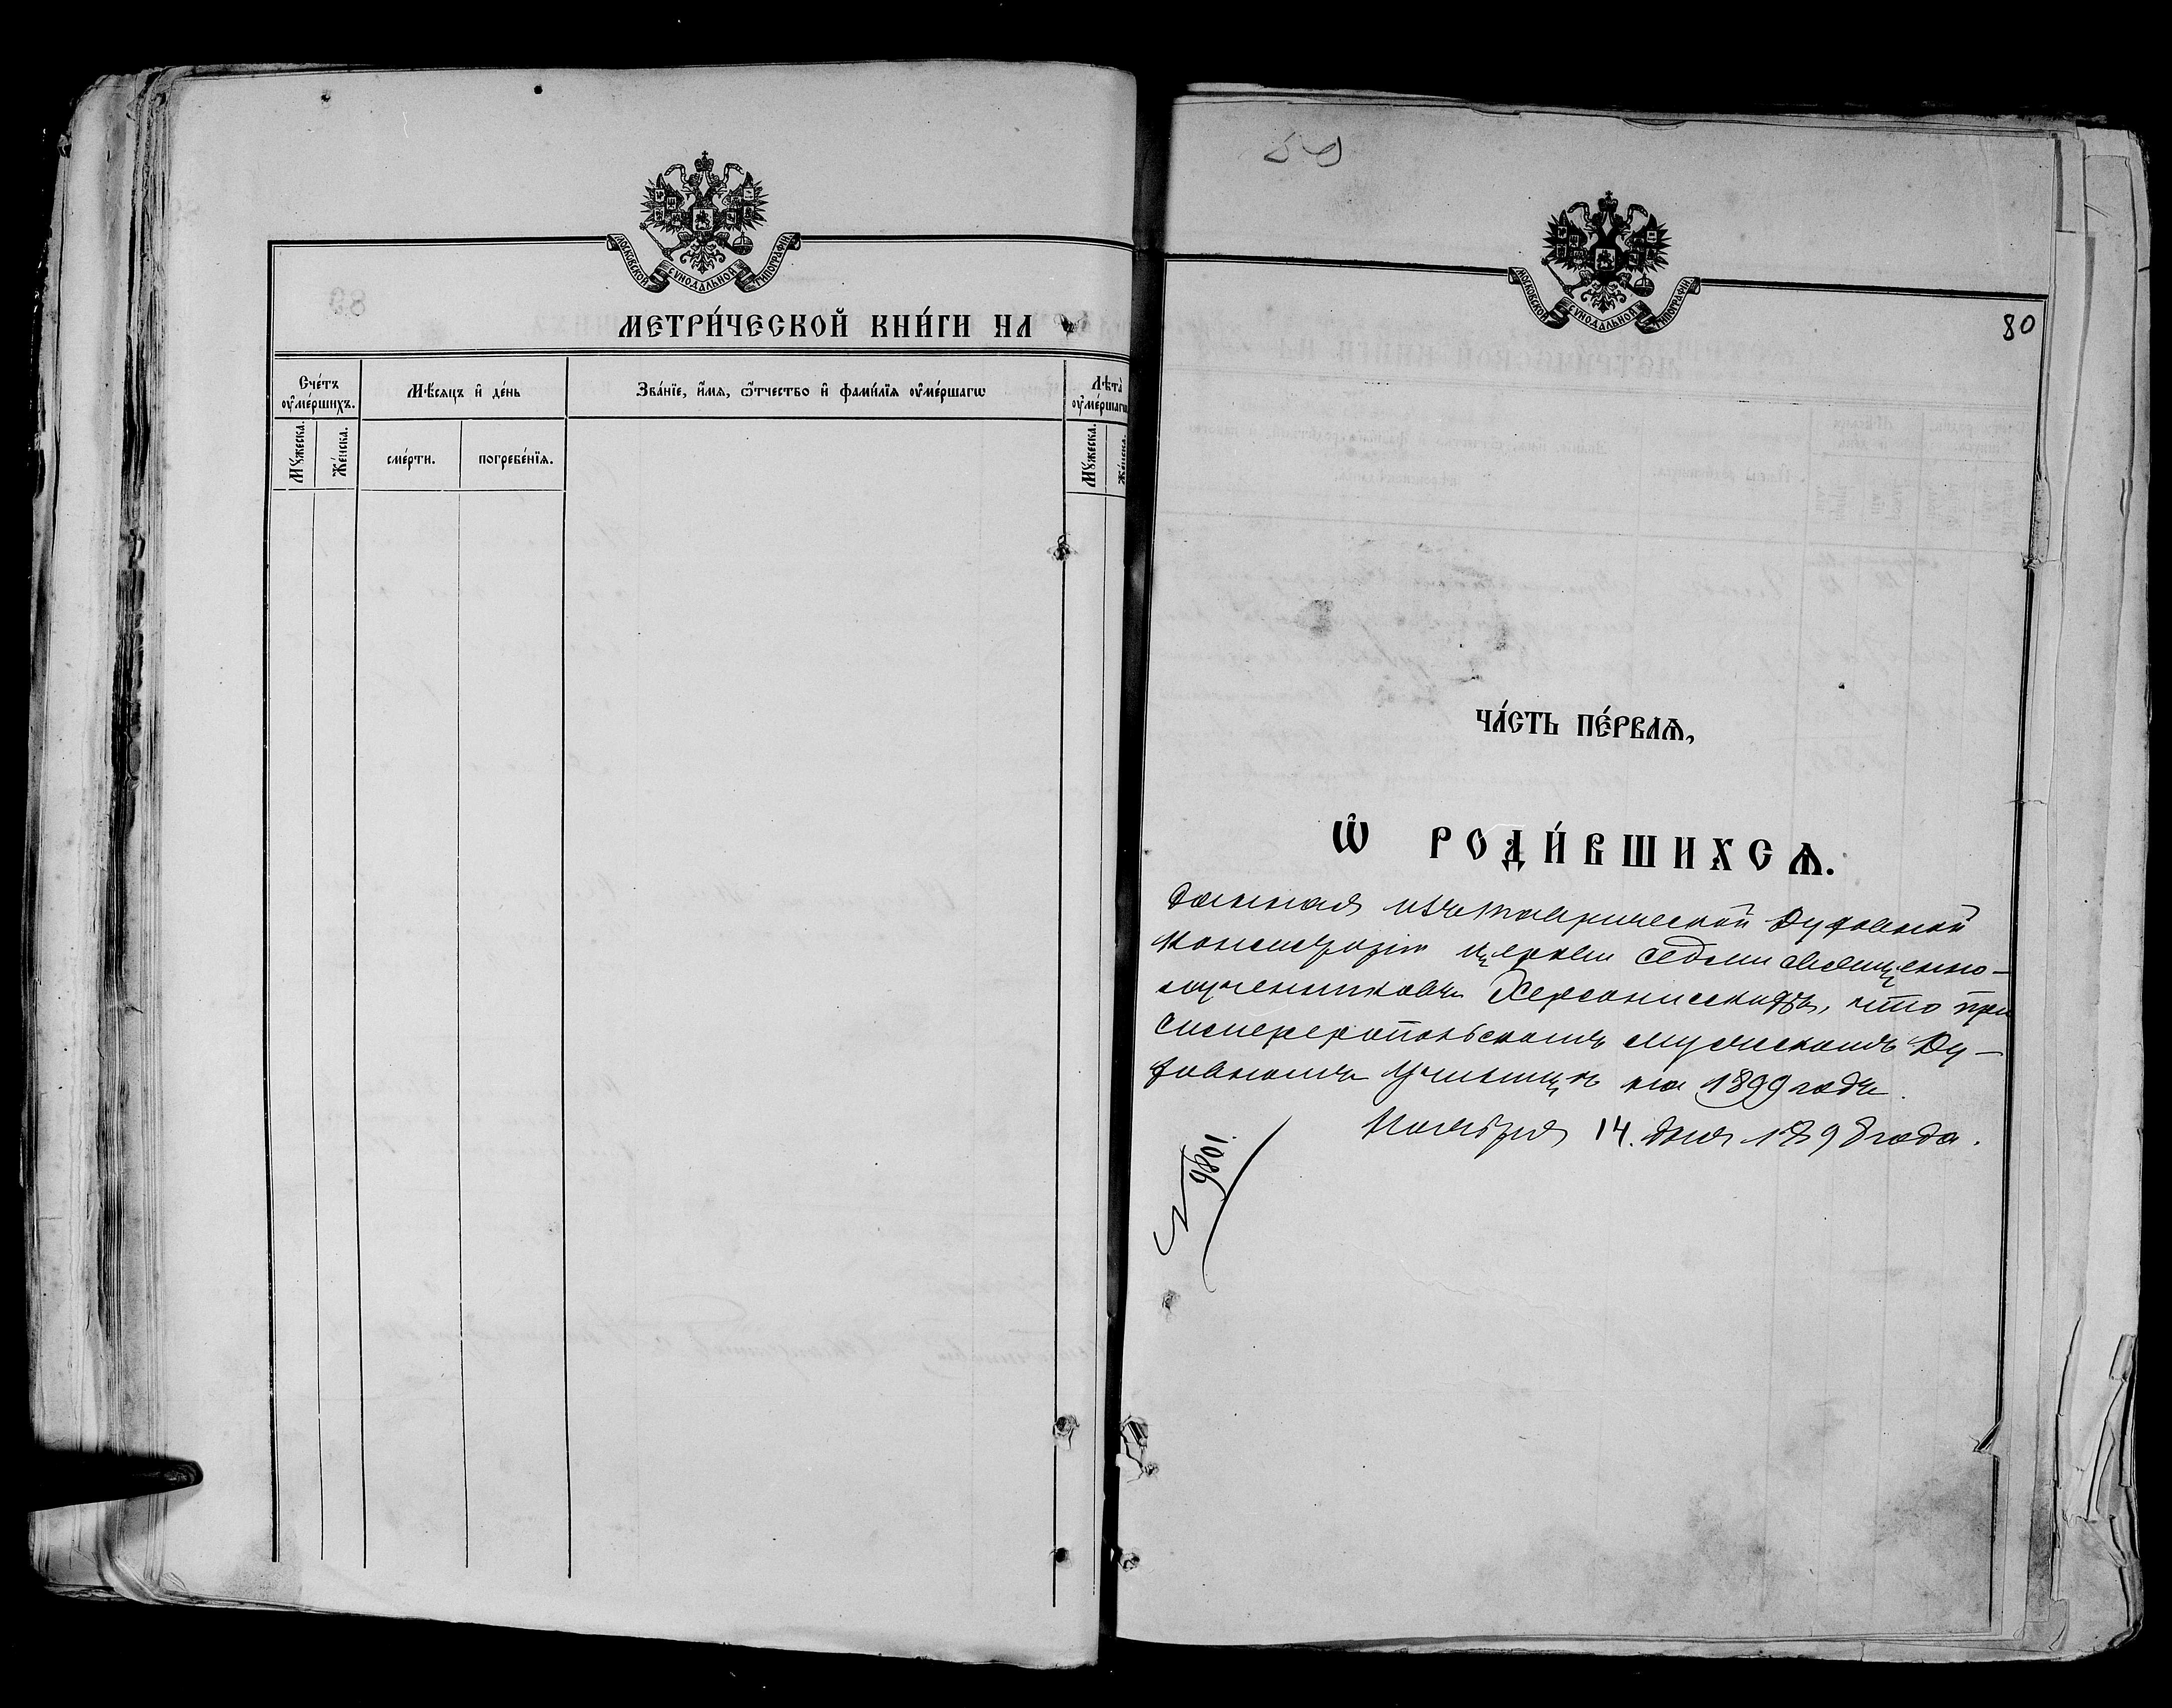 МОСКОВСКОЙ СѴНОДАЛЬНОЙ ТИПОГРАФІИ
МЕТРИ́ЧЕСКОЙ КНИ́ГИ НА
Сче́тъ оу҆ме́ршихъ.
Мѣ́сяцъ и҆ де́нь
Зва́нїе, и҆́мя, ѻ҆́тчество и҆ фамі́лїя оу҆ме́ршагѡ
Лѣта̀ оу҆ме́ршагѡ
Мꙋ́жеска.
Же́нска.
сме́рти.
погребе́нїя.
Мꙋ́жеска.
Же́нска.
50
МОСКОВСКОЙ СѴНОДАЛЬНОЙ ТИПОГРАФІИ
80
ЧА́СТЬ ПЕ́РВАѦ,
Ѽ РОДИ́ВШИХСѦ.
данная изъ Таврической Духовной
Консисторіи церкви седми священно-
мучениковъ Херсонисскихъ, что при
Симферопольскомъ мужескомъ Ду-
ховномъ Училищѣ на 1899 годъ.
Ноября 14. дня 1898 года.
№ 9801.